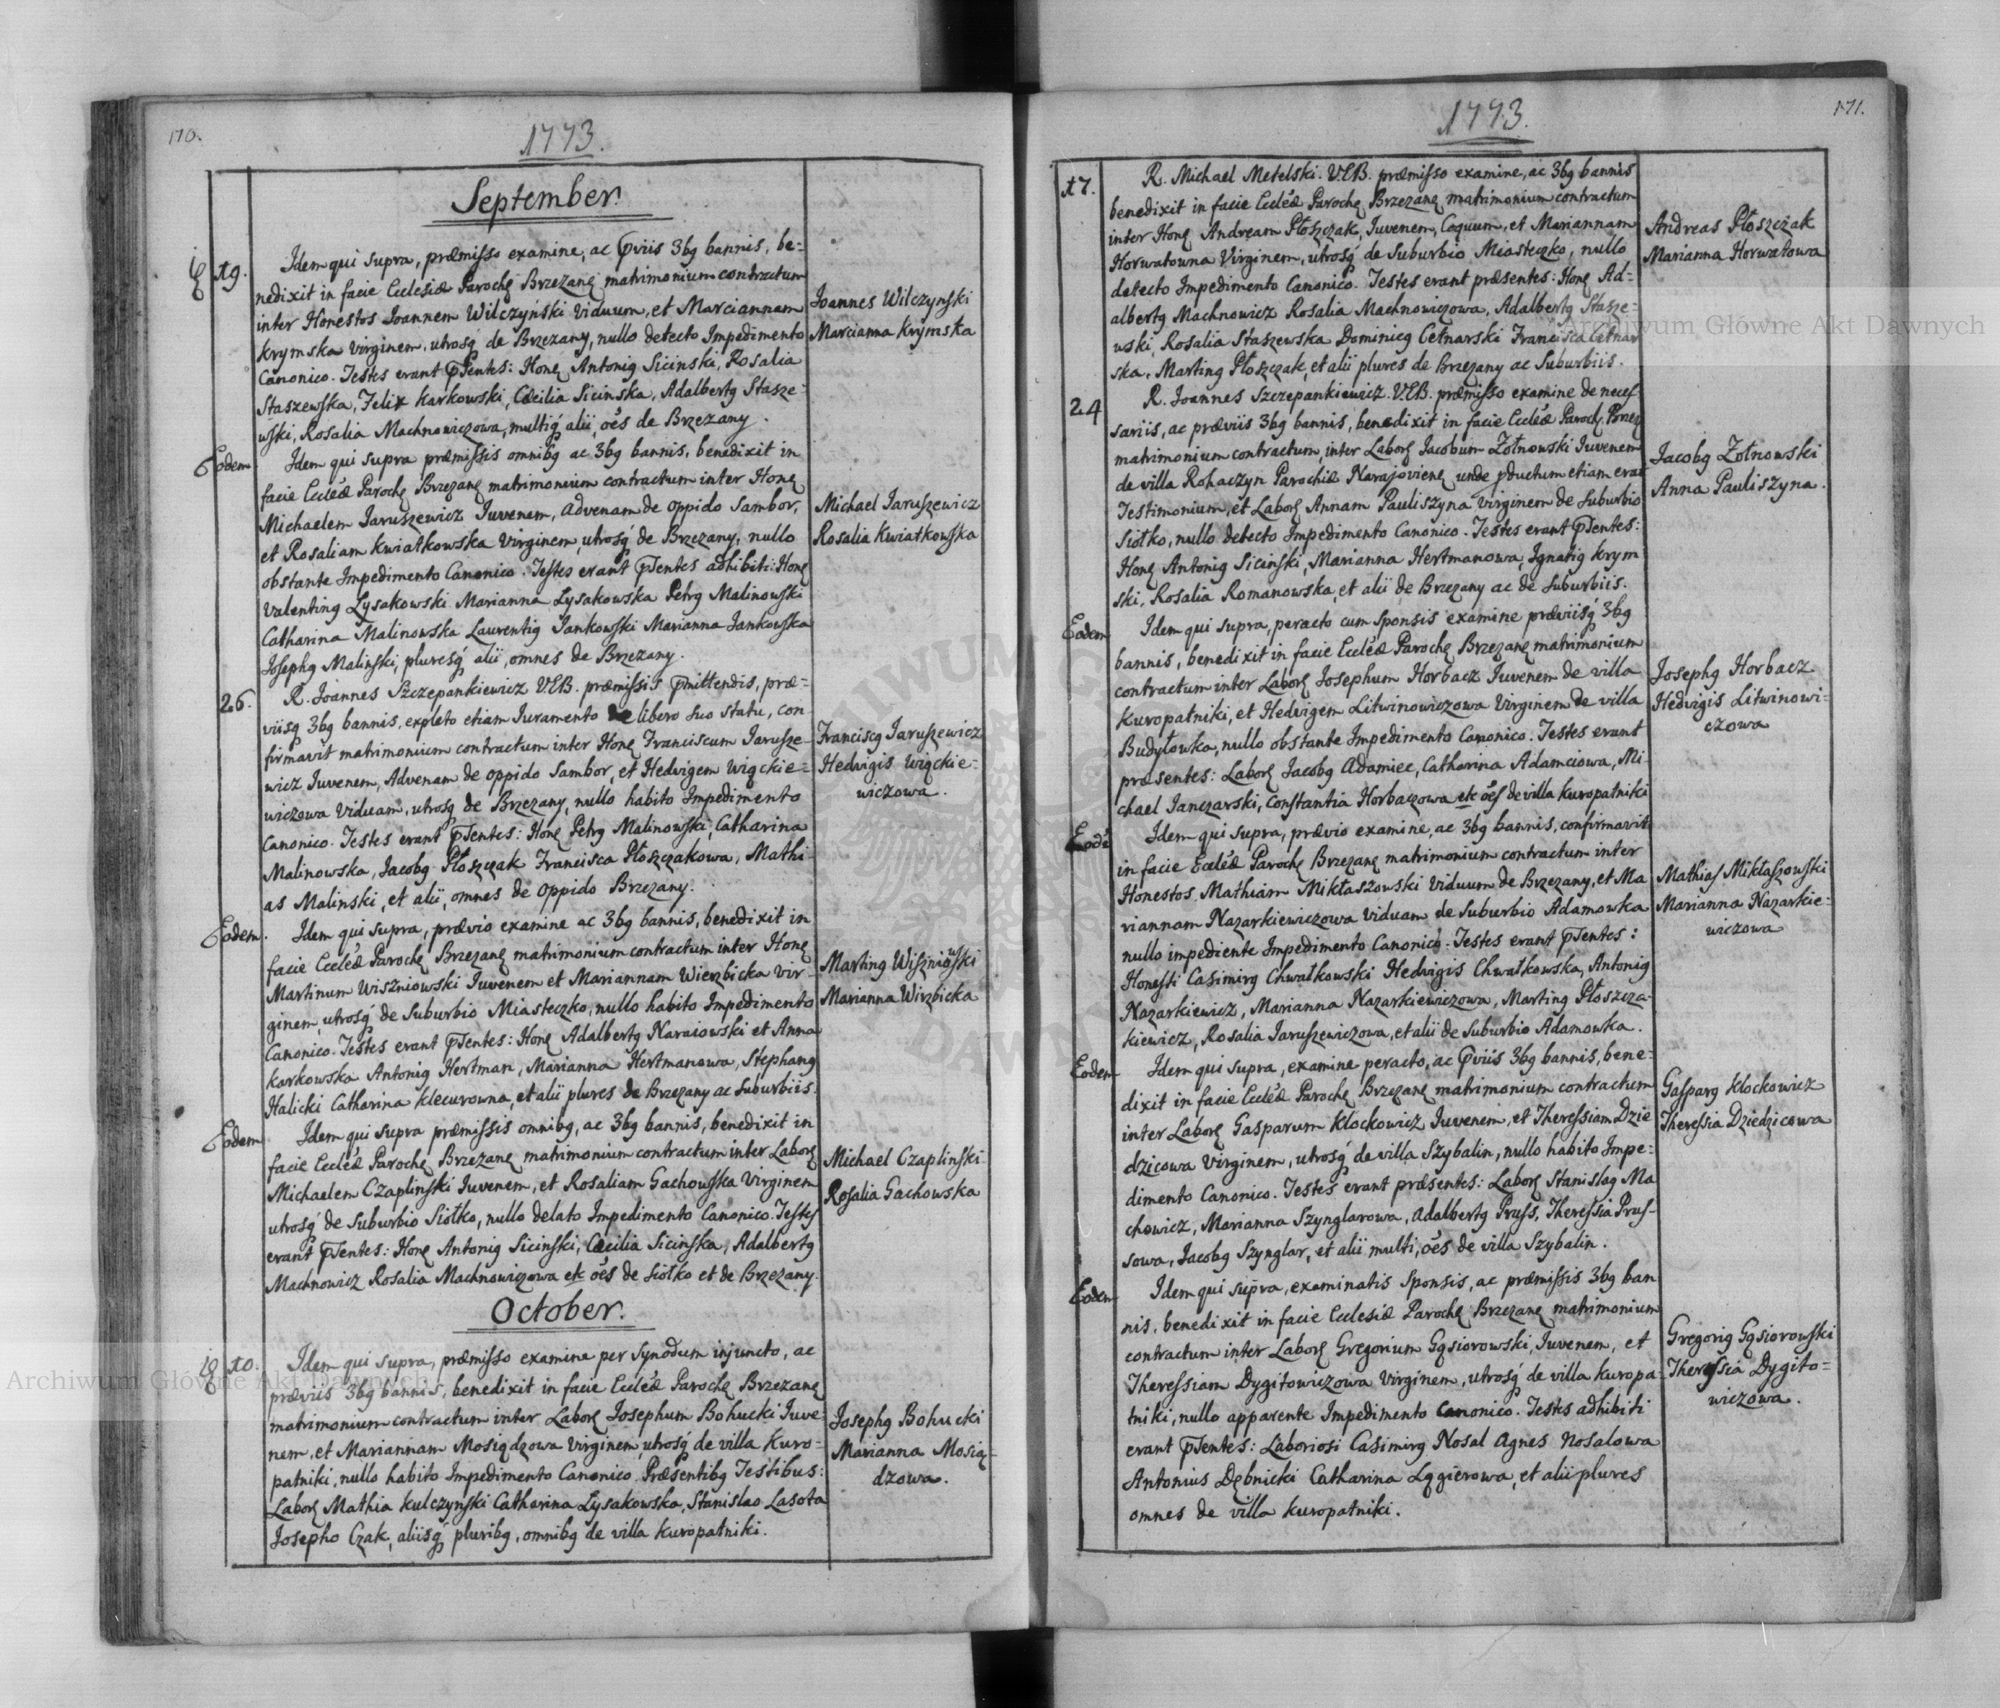 170.
1773.
September.
19.
Idem qui supra, præmisso examine, ac pviis 3bq bannis, be=
nedixit in facie Ecclesiæ Parochę Brzezanę matrimonium contractum
inter Honestos Joannem Wilczyński Viduum, et Marciannam
Krymska Virginem, utrosq́ de Brzezany, nullo detecto Impedimento
Canonico. Testes erant pſentes: Honę Antoniq Siciński, Rosalia
Staszewska, Felix Karkowski, Cæcilia Sicińska, Adalbertq Stasze=
wski, Rosalia Machnowiczowa, multiq́ alii, oẽs de Brzezany.
Joannes Wilczynski
Marcianna Krymska
Eodem
Idem qui supra præmissis omnibq ac 3bq bannis, benedixit in
facie Eccléæ Parochę Brzezanę matrimonium contractum inter Honę
Michaelem Jaruszewicz Juvenem, Advenam de oppido Sambor,
et Rosaliam Kwiatkowska Virginem, utrosq́ de Brzezany, nullo
obstante Impedimento Canonico. Testes erant pſentes adhibiti: Honę
Valentinq Łysakowski Marianna Łysakowska Petrq Malinowski
Catharina Malinowska Laurentiq Jankowski Marianna Jankowska
Josephq Malinski, pluresq́ alii, omnes de Brzezany.
Michael Jaruszewicz
Rosalia Kwiatkowska
26.
R. Joannes Szczepankiewicz V.E.B. præmissis pmittendis, præ=
viisq 3bq bannis, expleto etiam Juramento de libero suo statu, con
firmavit matrimonium contractum inter Honę Franciscum Jarusze=
wicz Juvenem, Advenam de oppido Sambor, et Hedvigem Wiąckie=
wiczowa Viduam, utrosq de Brzezany, nullo habito Impedimento
Canonico. Testes erant pſentes: Honę Petrq Malinowski, Catharina
Malinowska, Jacobq Płoszczak Francisca Płoszczakowa, Mathi=
as Malinski, et alii, omnes de oppido Brzezany.
Franciscq Jaruszewicz
Hedvigis Wiąckie=
wiczowa.
Eodem.
Idem qui supra, prævio examine ac 3bq bannis, benedixit in
facie Eccléæ Parochę Brzezanę matrimonium contractum inter Honę
Martinum Wiszniowski Juvenem et Mariannam Wierzbicka Vir=
ginem, utrosq́ de Suburbio Miasteczko, nullo habito Impedimento
Canonico. Testes erant pſentes: Honę Adalbertq Naraiowski et Anna
Karkowska Antoniq Hertman, Marianna Hertmanowa, Stephanq
Halicki Catharina Klecurowna, et alii plures de Brzezany ac Suburbiis.
Martinq Wiszniowski
Marianna Wirzbicka
Eodem
Idem qui supra præmissis omnibq, ac 3bq bannis, benedixit in
facie Eccléæ Parochę Brzezanę matrimonium contractum inter Laborę
Michaelem Czaplinski Juvenem, et Rosaliam Gachowska Virginem
utrosq́ de Suburbio Siołko, nullo delato Impedimento Canonico. Testes
erant pſentes: Honę Antoniq Siciński, Cæcilia Sicińska, Adalbertq
Machnowicz Rosalia Machnowiczowa etc oẽs de Siołko et de Brzezany.
Michael Czaplinski
Rosalia Gachowska
October.
10.
Idem qui supra, præmisso examine per Synodum injuncto, ac
præviis 3bq bannis, benedixit in facie Eccléæ Parochę Brzezanę
matrimonium contractum inter Laborę Josephum Bohucki Juve
nem, et Mariannam Mosiądzowa Virginem, utrosq́ de villa Kuro=
patniki, nullo habito Impedimento Canonico. Præsentibq Testibus:
Laborę Mathia Kulczynski Catharina Łysakowska, Stanislao Lasota
Josepho Czak, aliisq́ pluribq, omnibq de villa Kuropatniki.
Josephq Bohucki
Marianna Mosią=
dzowa.
171.
1773.
17.
R. Michael Metelski. V.E.B. præmisso examine, ac 3bq bannis
benedixit in facie Eccléæ Parochę Brzezanę matrimonium contractum
inter Honę Andream Płoszczak, Juvenem, Coquum, et Mariannam
Horwatowna Virginem, utrosq́ de Suburbio Miasteczko, nullo
detecto Impedimento Canonico. Testes erant præsentes: Honę Ad=
albertq Machnowicz Rosalia Machnowiczowa, Adalbertq Stasze=
wski, Rosalia Staszewska Dominicq Cetnarski Francisca Cetnar
ska, Martinq Płoszczak, et alii plures de Brzezany ac Suburbiis.
Andreas Płoszczak
Marianna Horwatowa
24
R. Joannes Szczepankiewicz. V.E.B. præmisso examine de neces
sariis, ac præviis 3bq bannis, benedixit in facie Eccléæ Paroch Brzez
matrimonium contractum, inter Laborę Jacobum Żołnowski Juvenem
de villa Rohaczyn Parochiæ Narajovienę unde pductum etiam erat
Testimonium, et Laborę Annam Pauliszyna Virginem de Suburbio
Siołko, nullo detecto Impedimento Canonico. Testes erant pſentes:
Honę Antoniq Siciński, Marianna Hertmanowa, Ignatiq Krym
ski, Rosalia Romanowska, et alii de Brzezany ac de Suburbiis.
Jacobq Żołnowski
Anna Pauliszyna.
Eodem
Idem qui supra, peracto cum Sponsis examine præviisq́ 3bq
bannis, benedixit in facie Eccléæ Parochę Brzezanę matrimonium
contractum inter Laborę Josephum Horbacz Juvenem de villa
Kuropatniki, et Hedvigem Litwinowiczowa Virginem de villa
Budyłowka, nullo obstante Impedimento Canonico. Testes erant
præsentes: Laborę Jacobq Adamiec, Catharina Adamciowa, Mi
chael Janczarski, Constantia Horbaczowa etc oẽs de villa Kuropatniki
Josephq Horbacz
Hedvigis Litwinowi=
czowa
Eodẽ
Idem qui supra, prævio examine, ac 3bq bannis, confirmavit
in facie Eccléæ Parochę Brzezanę matrimonium contractum inter
Honestos Mathiam Mikłaszowski Viduum de Brzezany, et Ma
riannam Nazarkiewiczowa Viduam de Suburbio Adamowka
nullo impediente Impedimento Canonico. Testes erant pſentes:
Honesti Casimirq Chwałkowski Hedvigis Chwałkowska, Antoniq
Nazarkiewicz, Marianna Nazarkiewiczowa, Martinq Płoszcza=
kiewicz, Rosalia Jaruszewiczowa, et alii de Suburbio Adamowka.
Mathias Mikłaszowski
Marianna Nazarkie=
wiczowa
Eodem
Idem qui supra, examine peracto, ac pviis 3bq bannis, bene=
dixit in facie Eccléæ Parochę Brzezanę matrimonium contractum
inter Laborę Gasparum Klockowicz Juvenem, et Theressiam Dzie
dzicowa Virginem, utrosq́ de villa Szybalin, nullo habito Impe=
dimento Canonico. Testes erant præsentes: Laborę Stanislaq Ma
chowicz, Marianna Szynglarowa, Adalbertq Pruss, Theressia Prus=
sowa, Jacobq Szynglar, et alii multi, oẽs de villa Szybalin.
Gasparq Klockowicz
Theressia Dziedzicowa
Eodem
Idem qui supra, examinatis Sponsis, ac præmissis 3bq ban
nis, benedixit in facie Ecclesiæ Parochę Brzezanę matrimonium
contractum inter Laborę Gregorium Gąsiorowski, Juvenem, et
Theressiam Dygitowiczowa Virginem, utrosq́ de villa Kuropa=
tniki, nullo apparente Impedimento Canonico. Testes adhibiti
erant pſentes: Laboriosi Casimirq Nosal Agnes Nosalowa
Antonius Dębnicki Catharina Łągierowa, et alii plures
omnes de villa Kuropatniki.
Gregoriq Gąsiorowski
Theressia Dygito=
wiczowa.
Archiwum Główne Akt Dawnych
Archiwum Główne Akt Dawnych